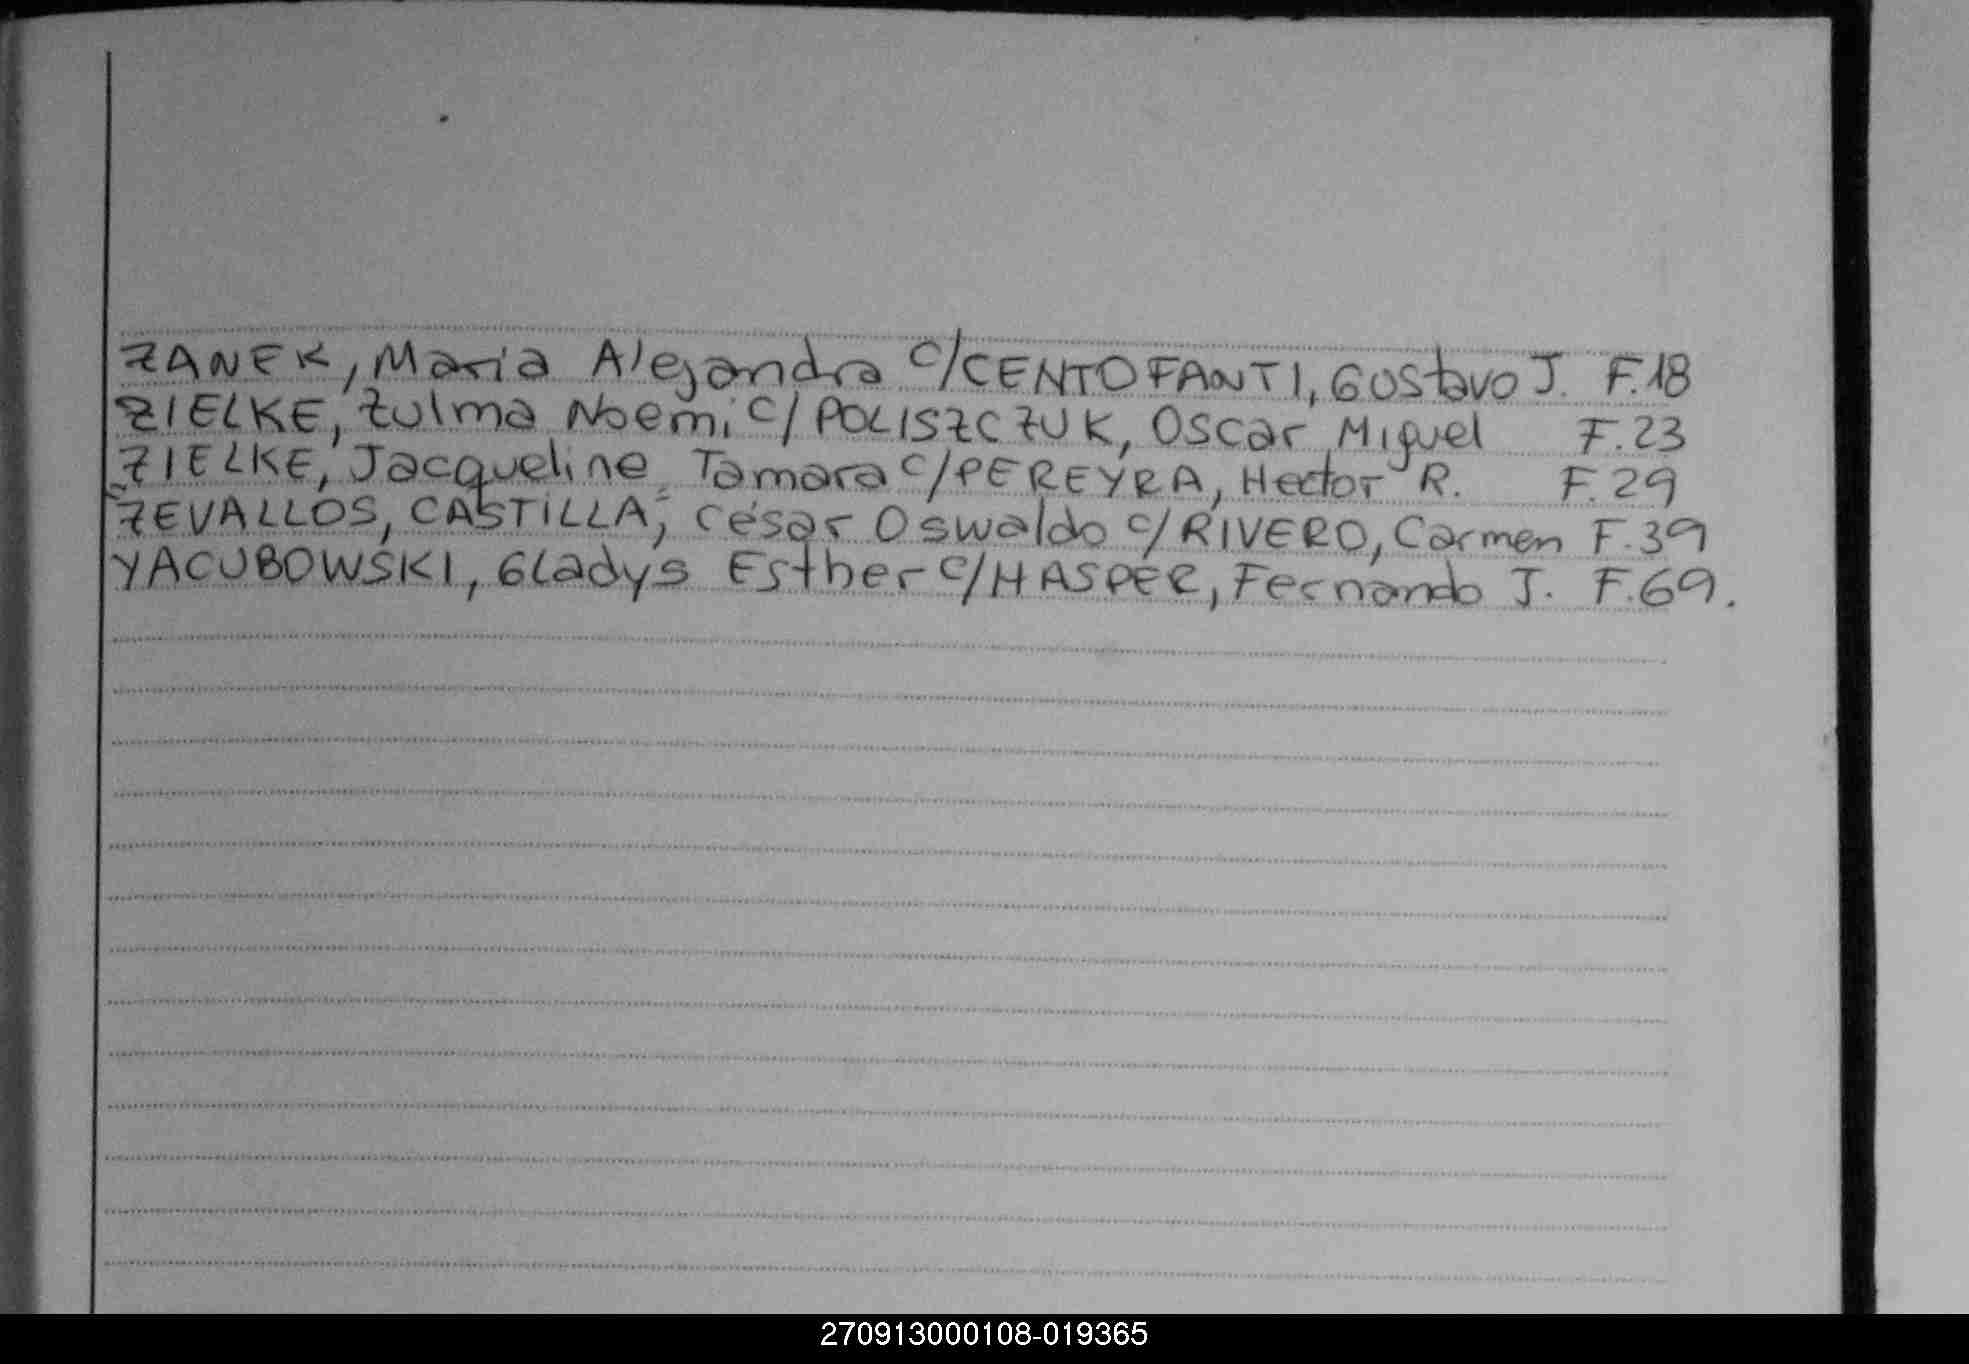 ZANEK, Maria Alejandra c/CENTOFANTI, Gustavo J. F.18
ZIELKE, Zulma Noemi c/POLISZCZUK, Oscar Miguel F.23
ZIELKE, Jacqueline Tamara c/PEREYRA, Hector R. F.29
ZEVALLOS, CASTILLA, César Oswaldo c/RIVERO, Carmen F.39
YACUBOWSKI, Gladys Esther c/HASPER, Fernando J. F.69.
270913000108-019365